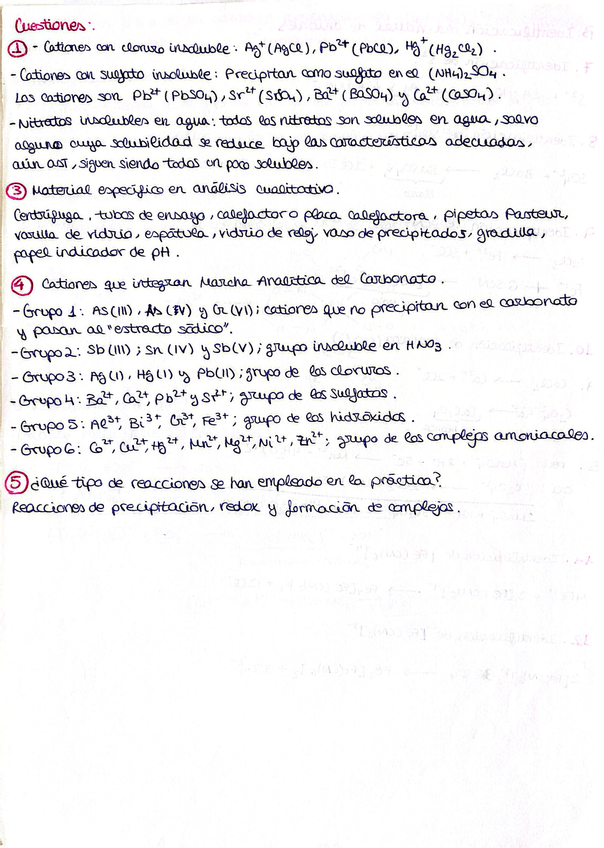 Cuestiones:
① - Cationes con cloruro insoluble: Ag⁺ (AgCl), Pb²⁺ (PbCl), Hg⁺ (Hg₂Cl₂).
- Cationes con sulfato insoluble: Precipitan como sulfato en el (NH₄)₂SO₄.
Los cationes son Pb²⁺ (PbSO₄), Sr²⁺ (SrSO₄), Ba²⁺ (BaSO₄) y Ca²⁺ (CaSO₄).
- Nitratos insolubles en agua: todos los nitratos son solubles en agua, salvo
alguno cuya solubilidad se reduce bajo las características adecuadas,
aún así, siguen siendo todos un poco solubles.
③ Material específico en análisis cualitativo.
Centrífuga, tubos de ensayo, calefactor o placa calefactora, pipetas Pasteur,
varilla de vidrio, espátula, vidrio de reloj, vaso de precipitados, gradilla,
papel indicador de pH.
④ Cationes que integran Marcha Analítica del Carbonato.
- Grupo 1: As(III), As(IV) y Cr(VI); cationes que no precipitan con el carbonato
y pasan al "extracto sódico".
- Grupo 2: Sb(III); Sn(IV) y Sb(V); grupo insoluble en HNO₃.
- Grupo 3: Ag(I), Hg(I) y Pb(II); grupo de los cloruros.
- Grupo 4: Ba²⁺, Ca²⁺, Pb²⁺ y Sr²⁺; grupo de los sulfatos.
- Grupo 5: Al³⁺, Bi³⁺, Cr³⁺, Fe³⁺; grupo de los hidróxidos.
- Grupo 6: Co²⁺, Cu²⁺, Hg²⁺, Mn²⁺, Mg²⁺, Ni²⁺, Zn²⁺; grupo de los complejos amoniacales.
⑤ ¿Qué tipo de reacciones se han empleado en la práctica?
Reacciones de precipitación, redox y formación de complejos.